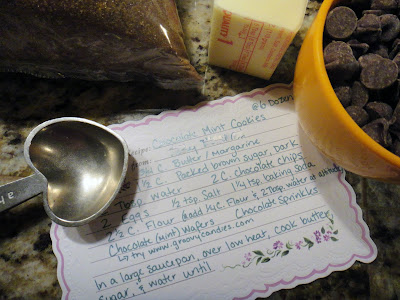 @ 6 Dozen
Recipe: Chocolate Mint Cookies
From:
3/4 C. Butter / margarine
1 1/2 C. Packed brown sugar, Dark
2 Tbsp Water 2 C. Chocolate Chips
2 Eggs 1/2 tsp Salt 1 1/4 tsp. baking soda
2 1/2 C. Flour (add 1/4 C. Flour & 2 Tbsp. water at altitude)
Chocolate (mint) Wafers Chocolate Sprinkles
↳ try www.groovycandies.com
In a large saucepan, over low heat, cook butter,
Sugar, & water until